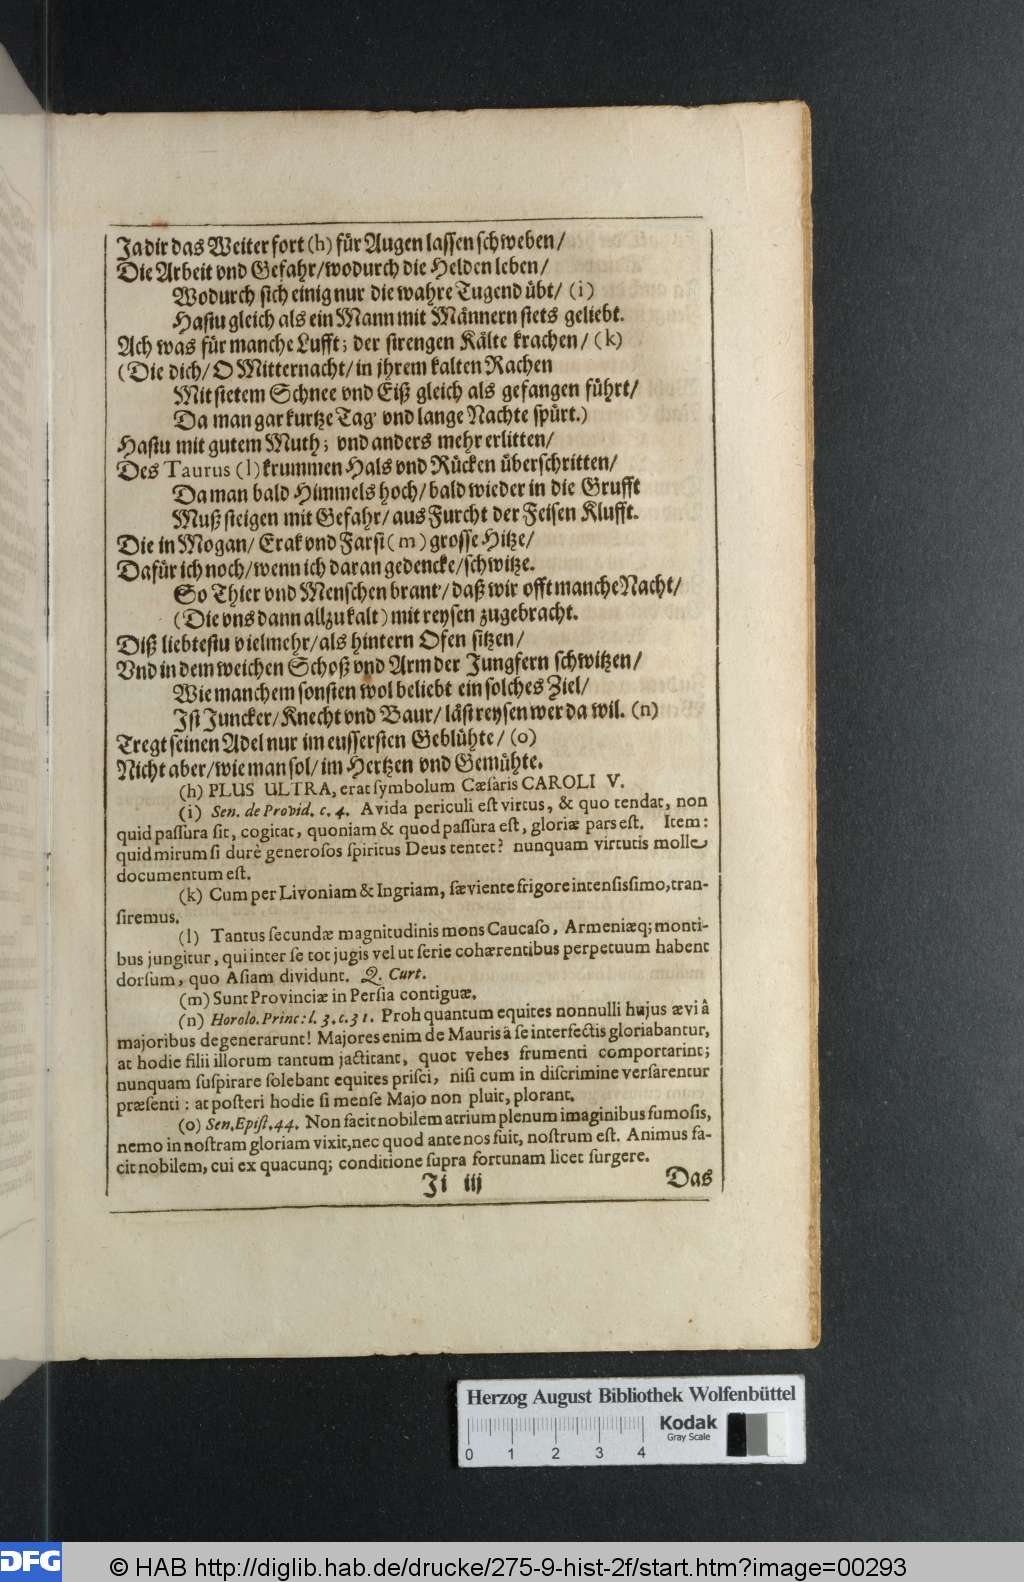 Ja dir das Weiter fort (h) für Augen lassen schweben/
Die Arbeit vnd Gefahr/wodurch die Helden leben/
Wodurch sich einig nur die wahre Tugend übt/ (i)
Hastu gleich als ein Mann mit Männern stets geliebt.
Ach was für manche Lufft; der strengen Kälte krachen/ (k)
(Die dich/ O Mitternacht/ in jhrem kalten Rachen
Mit stetem Schnee vnd Eiß gleich als gefangen führt/
Da man gar kurtze Tag' vnd lange Nachte spürt.)
Hastu mit gutem Muth; vnd anders mehr erlitten/
Des Taurus (l) krummen Hals vnd Rücken überschritten/
Da man bald Himmels hoch/ bald wieder in die Grufft
Muß steigen mit Gefahr/ aus Furcht der Felsen Klufft.
Die in Mogan/ Erak vnd Farsi (m) grosse Hitze/
Dafür ich noch/ wenn ich daran gedencke/schwitze.
So Thier vnd Menschen brant'/ daß wir offt manche Nacht/
(Die vns dann allzu kalt) mit reysen zugebracht.
Diß liebtestu vielmehr/als hintern Ofen sitzen/
Vnd in dem weichen Schoß vnd Arm der Jungfern schwitzen/
Wie manchem sonsten wol beliebt ein solches Ziel/
Ist Juncker/ Knecht vnd Baur/ läst reysen wer da wil. (n)
Tregt seinen Adel nur im eussersten Geblühte/ (o)
Nicht aber/ wie man sol/ im Hertzen vnd Gemühte.
(h) PLUS ULTRA, erat symbolum Cæsaris CAROLI V.
(i) Sen. de Provid. c. 4. Avida periculi est virtus, & quo tendat, non
quid passura sit, cogitat, quoniam & quod passura est, gloriæ pars est. Item:
quid mirum si durè generosos spiritus Deus tentet? nunquam virtutis molle
documentum est.
(k) Cum per Livoniam & Ingriam, sæviente frigore intensissimo, tran-
siremus.
(l) Tantus secundæ magnitudinis mons Caucaso, Armeniæq; monti-
bus jungitur, qui inter se tot jugis vel ut serie cohærentibus perpetuum habent
dorsum, quo Asiam dividunt. Q. Curt.
(m) Sunt Provinciæ in Persia contiguæ.
(n) Horolo. Princ: l. 3. c. 31. Proh quantum equites nonnulli hujus ævi â
majoribus degenerarunt! Majores enim de Mauris à se interfectis gloriabantur,
at hodie filii illorum tantum jactitant, quot vehes frumenti comportarint;
nunquam suspirare solebant equites prisci, nisi cum in discrimine versarentur
præsenti : at posteri hodie si mense Majo non pluit, plorant.
(o) Sen. Epist. 44. Non facit nobilem atrium plenum imaginibus fumosis,
nemo in nostram gloriam vixit, nec quod ante nos fuit, nostrum est. Animus fa-
cit nobilem, cui ex quacunq; conditione supra fortunam licet surgere.
Ii iij
Das
Herzog August Bibliothek Wolfenbüttel
Kodak
Gray Scale
0 1 2 3 4
DFG
© HAB http://diglib.hab.de/drucke/275-9-hist-2f/start.htm?image=00293